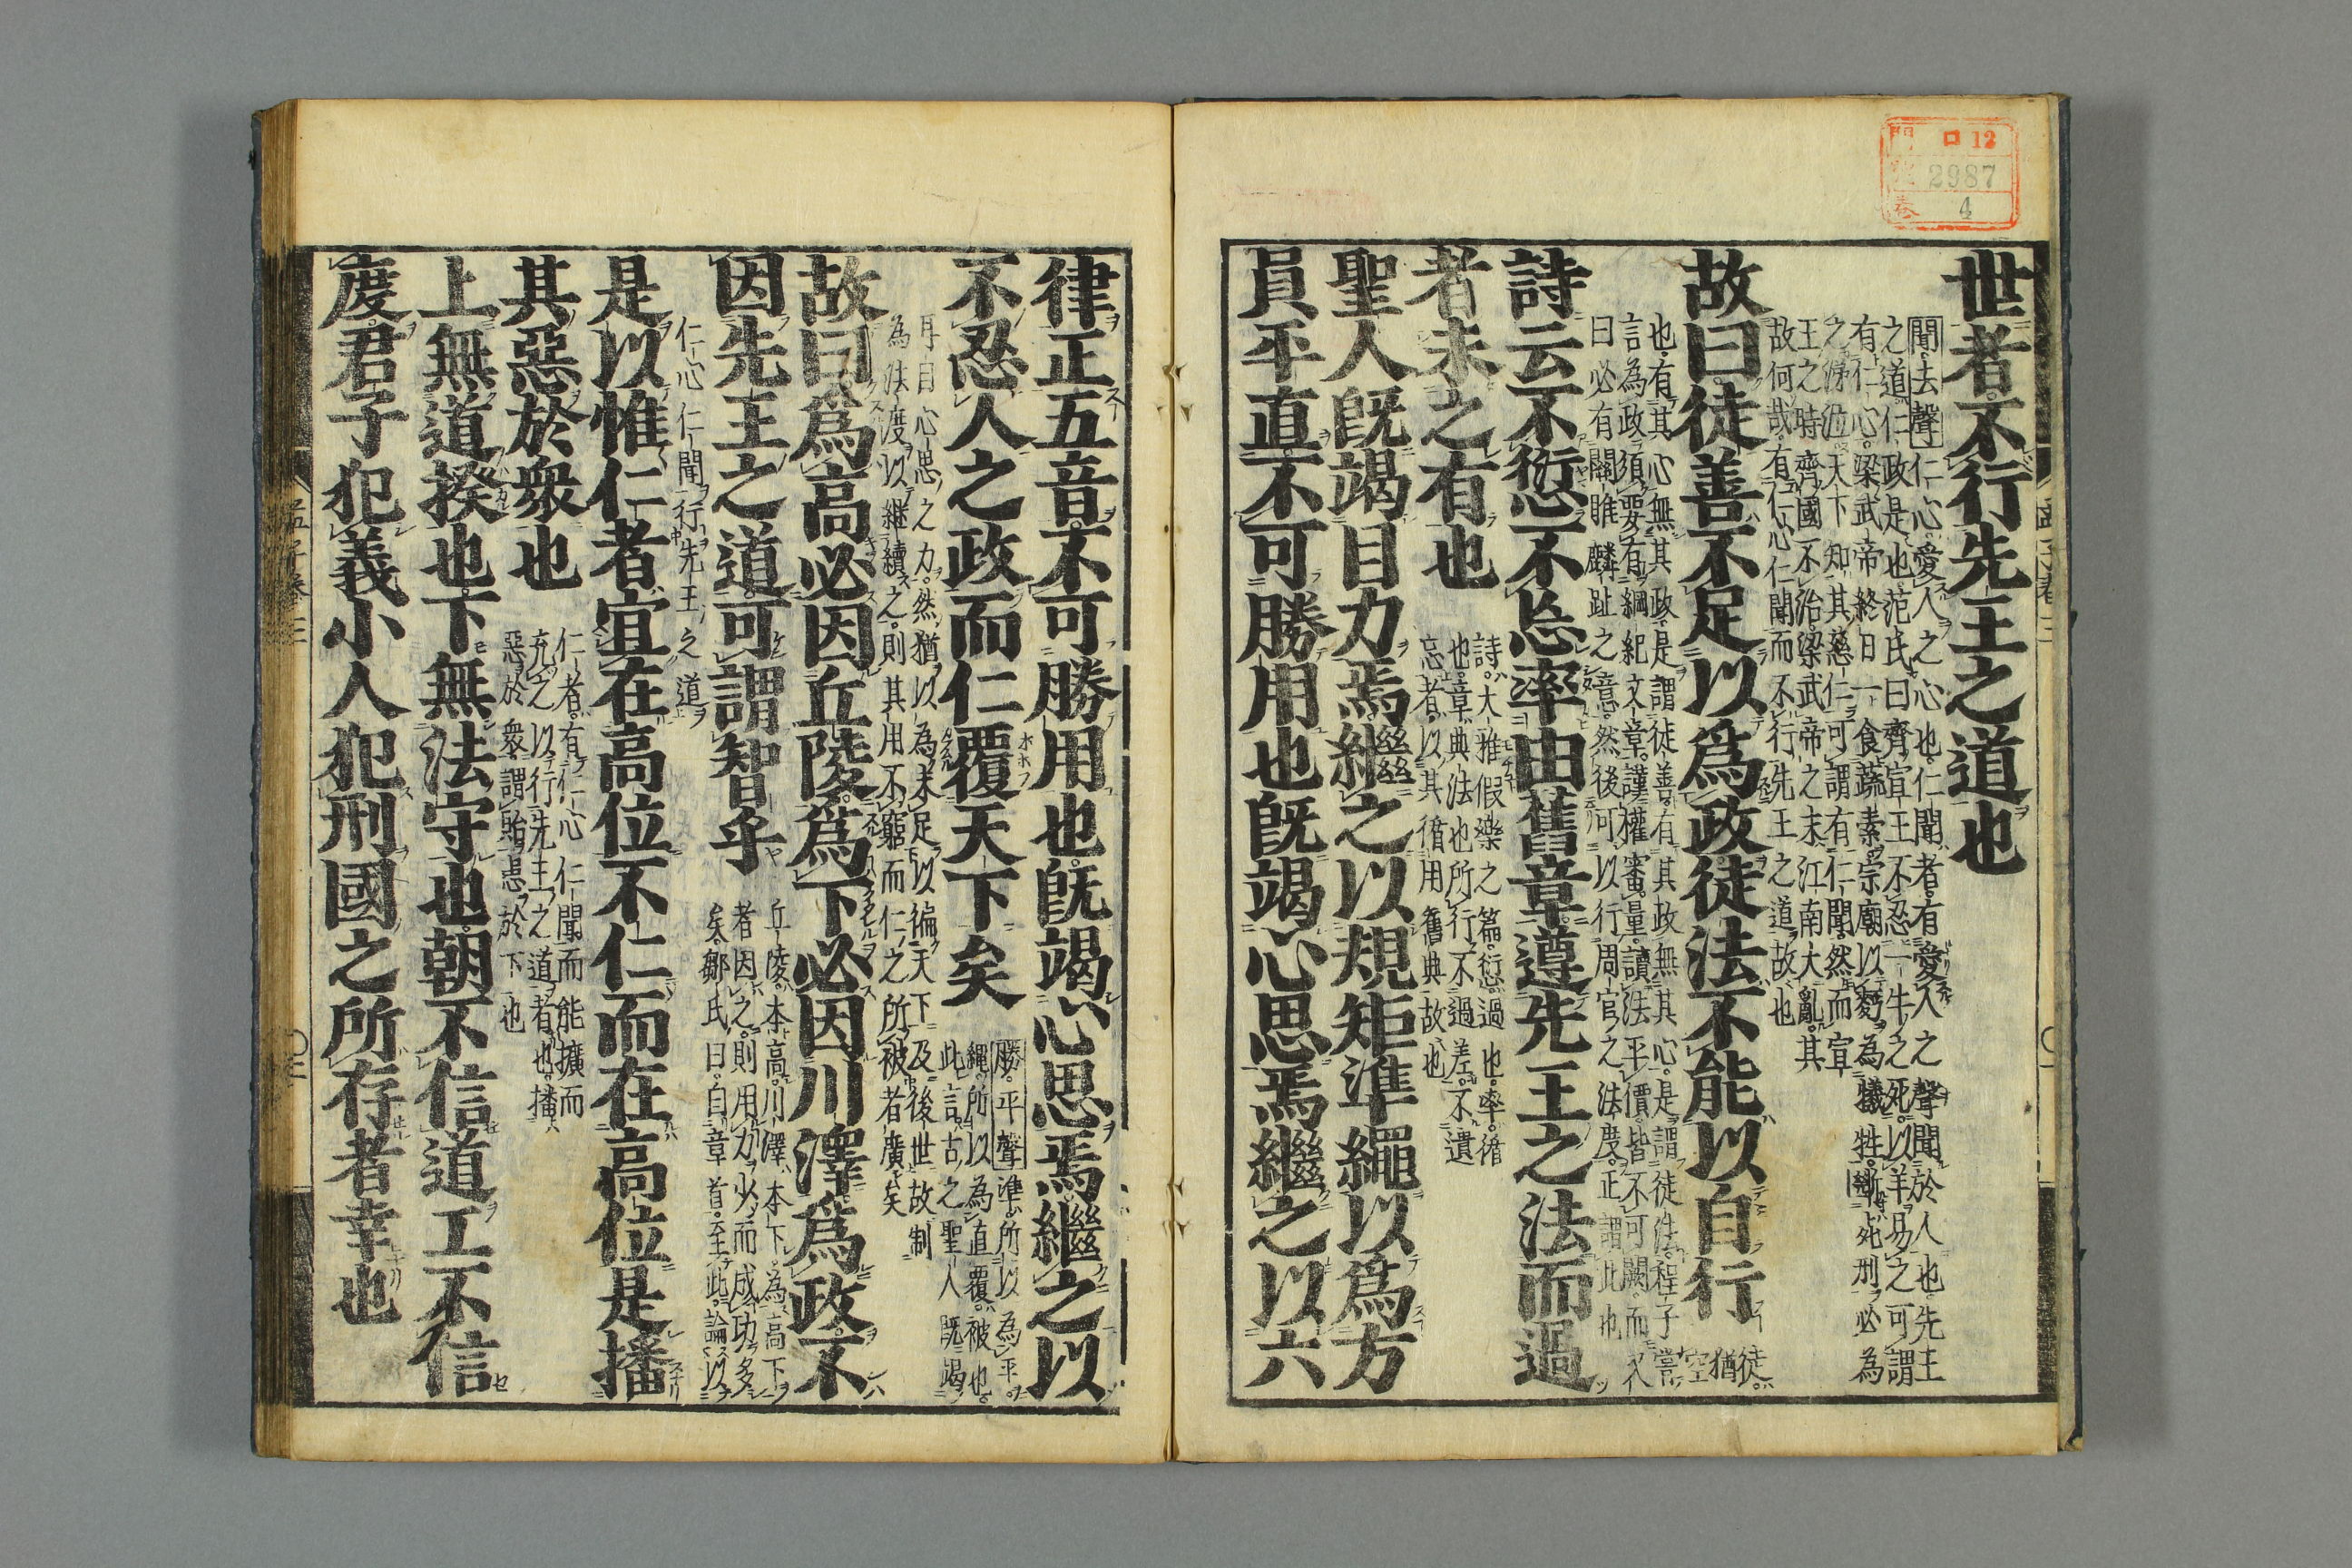 世者不行先王之道也
聞去聲仁心愛人之心也仁聞者有愛人之聲聞於人也先王
之道仁政是也范氏曰齊宣王不忍一牛之死以羊易之可謂
有仁心梁武帝終日一食蔬素宗廟以麪為犧牲斷死刑必為
之涕泣天下知其慈仁可謂有仁聞然而宣
王之時齊國不治梁武帝之末江南大亂其
故何哉有仁心仁聞而不行先王之道故也
故曰徒善不足以爲政徒法不能以自行
徒猶空
也有其心無其政是謂徒善有其政無其心是謂徒法程子嘗
言為政須要有綱紀文章謹權審量讀法平價皆不可闕而又
曰必有關睢麟趾之意然後可以行周官之法度正謂此也
詩云不愆不忘率由舊章遵先王之法而過
者未之有也
詩大雅假樂之篇愆過也率循
也章典法也所行不過差不遺
忘者以其循用舊典故也
聖人旣竭目力焉繼之以規矩準繩以爲方
員平直不可勝用也旣竭心思焉繼之以六
律正五音不可勝用也旣竭心思焉繼之以
不忍人之政而仁覆天下矣
勝平聲準所以為平
繩所以為直覆被也
此言古之聖人既竭
耳目心思之力然猶以為未足以徧天下及後世故制
為法度以継續之則其用不窮而仁之所被者廣矣
故曰爲高必因丘陵爲下必因川澤爲政不
因先王之道可謂智乎
丘陵本高川澤本下為高下
者因之則用力少而成功多
矣鄒氏曰自章首至此論以
仁心仁聞行先王之道
是以惟仁者宜在高位不仁而在高位是播
其惡於衆也
仁者有仁心仁聞而能擴而
充之以行先王之道者也播
惡於衆謂貽患於下也
上無道揆也下無法守也朝不信道工不信
度君子犯義小人犯刑國之所存者幸也
孟子卷三
〇三
門 ロ12
2987
巻 4